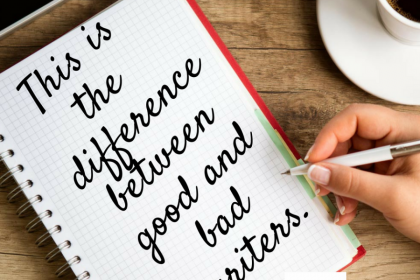 This is
the
difference
between
good and
bad
writers.